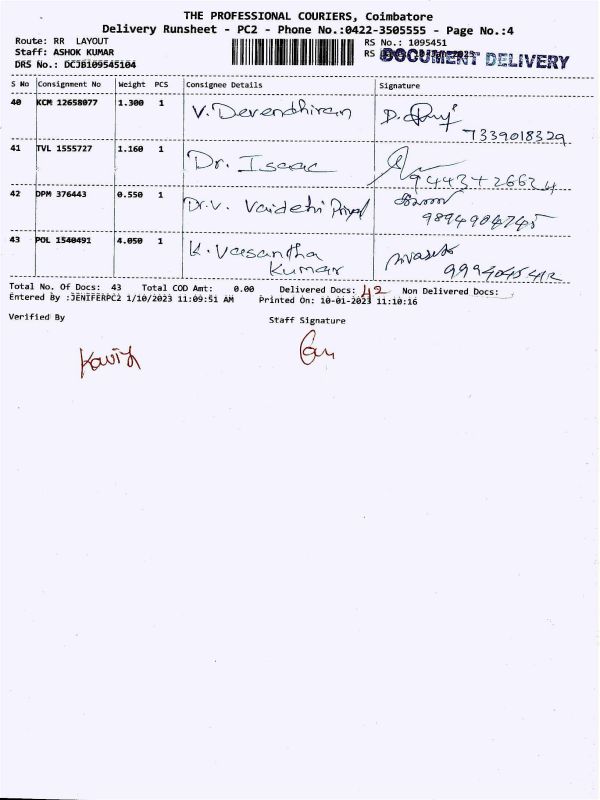 THE PROFESSIONAL COURIERS, Coimbatore
Delivery Runsheet - PC2 - Phone No.:0422-3505555 - Page No.:4
Route: RR LAYOUT
RS No.: 1095451
Staff: ASHOK KUMAR
RS
DOCUMENT DELIVERY
DRS No.: DCJB109545104
S No Consignment No Weight PCS Consignee Details Signature
40 KCM 12658077 1.300 1 V. Devendhiran
7339018329
41 TVL 1555727 1.160 1 Dr. Isaac
42 DPM 376443 0.550 1 Dr. V. Vaidehi Priyal
9894904745
43 POL 1540491 4.050 1 K. Vasantha
Kumar
9994045412
Total No. Of Docs: 43 Total COD Amt: 0.00 Delivered Docs: 42 Non Delivered Docs:
Entered By :JENIFERPC2 1/10/2023 11:09:51 AM Printed On: 10-01-2023 11:10:16
Verified By Staff Signature